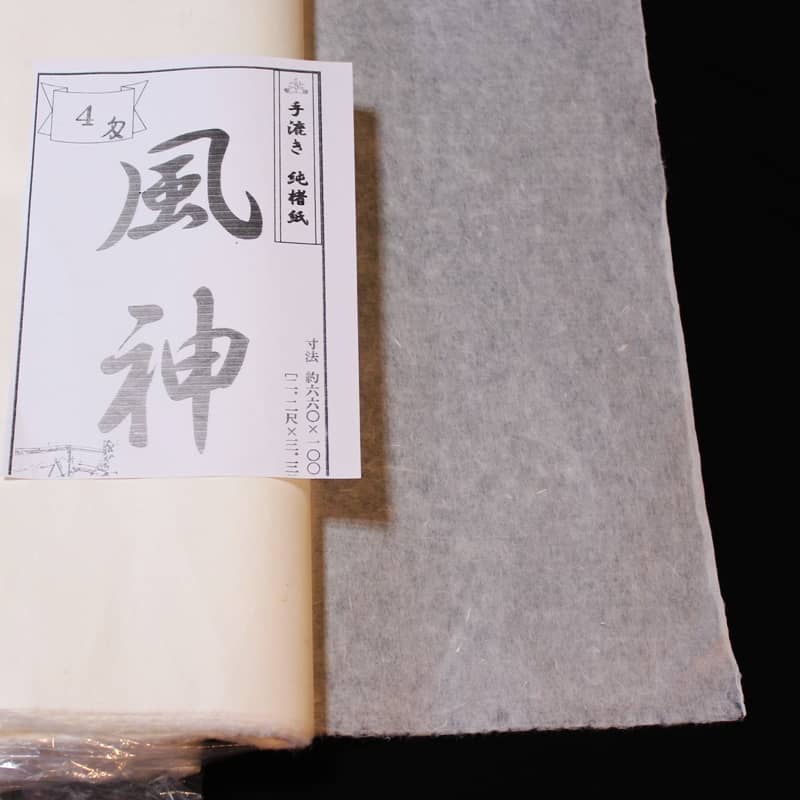 手漉き 純楮紙
4匁
風神
寸法 約六六〇×一〇〇
[二.二尺×三.三